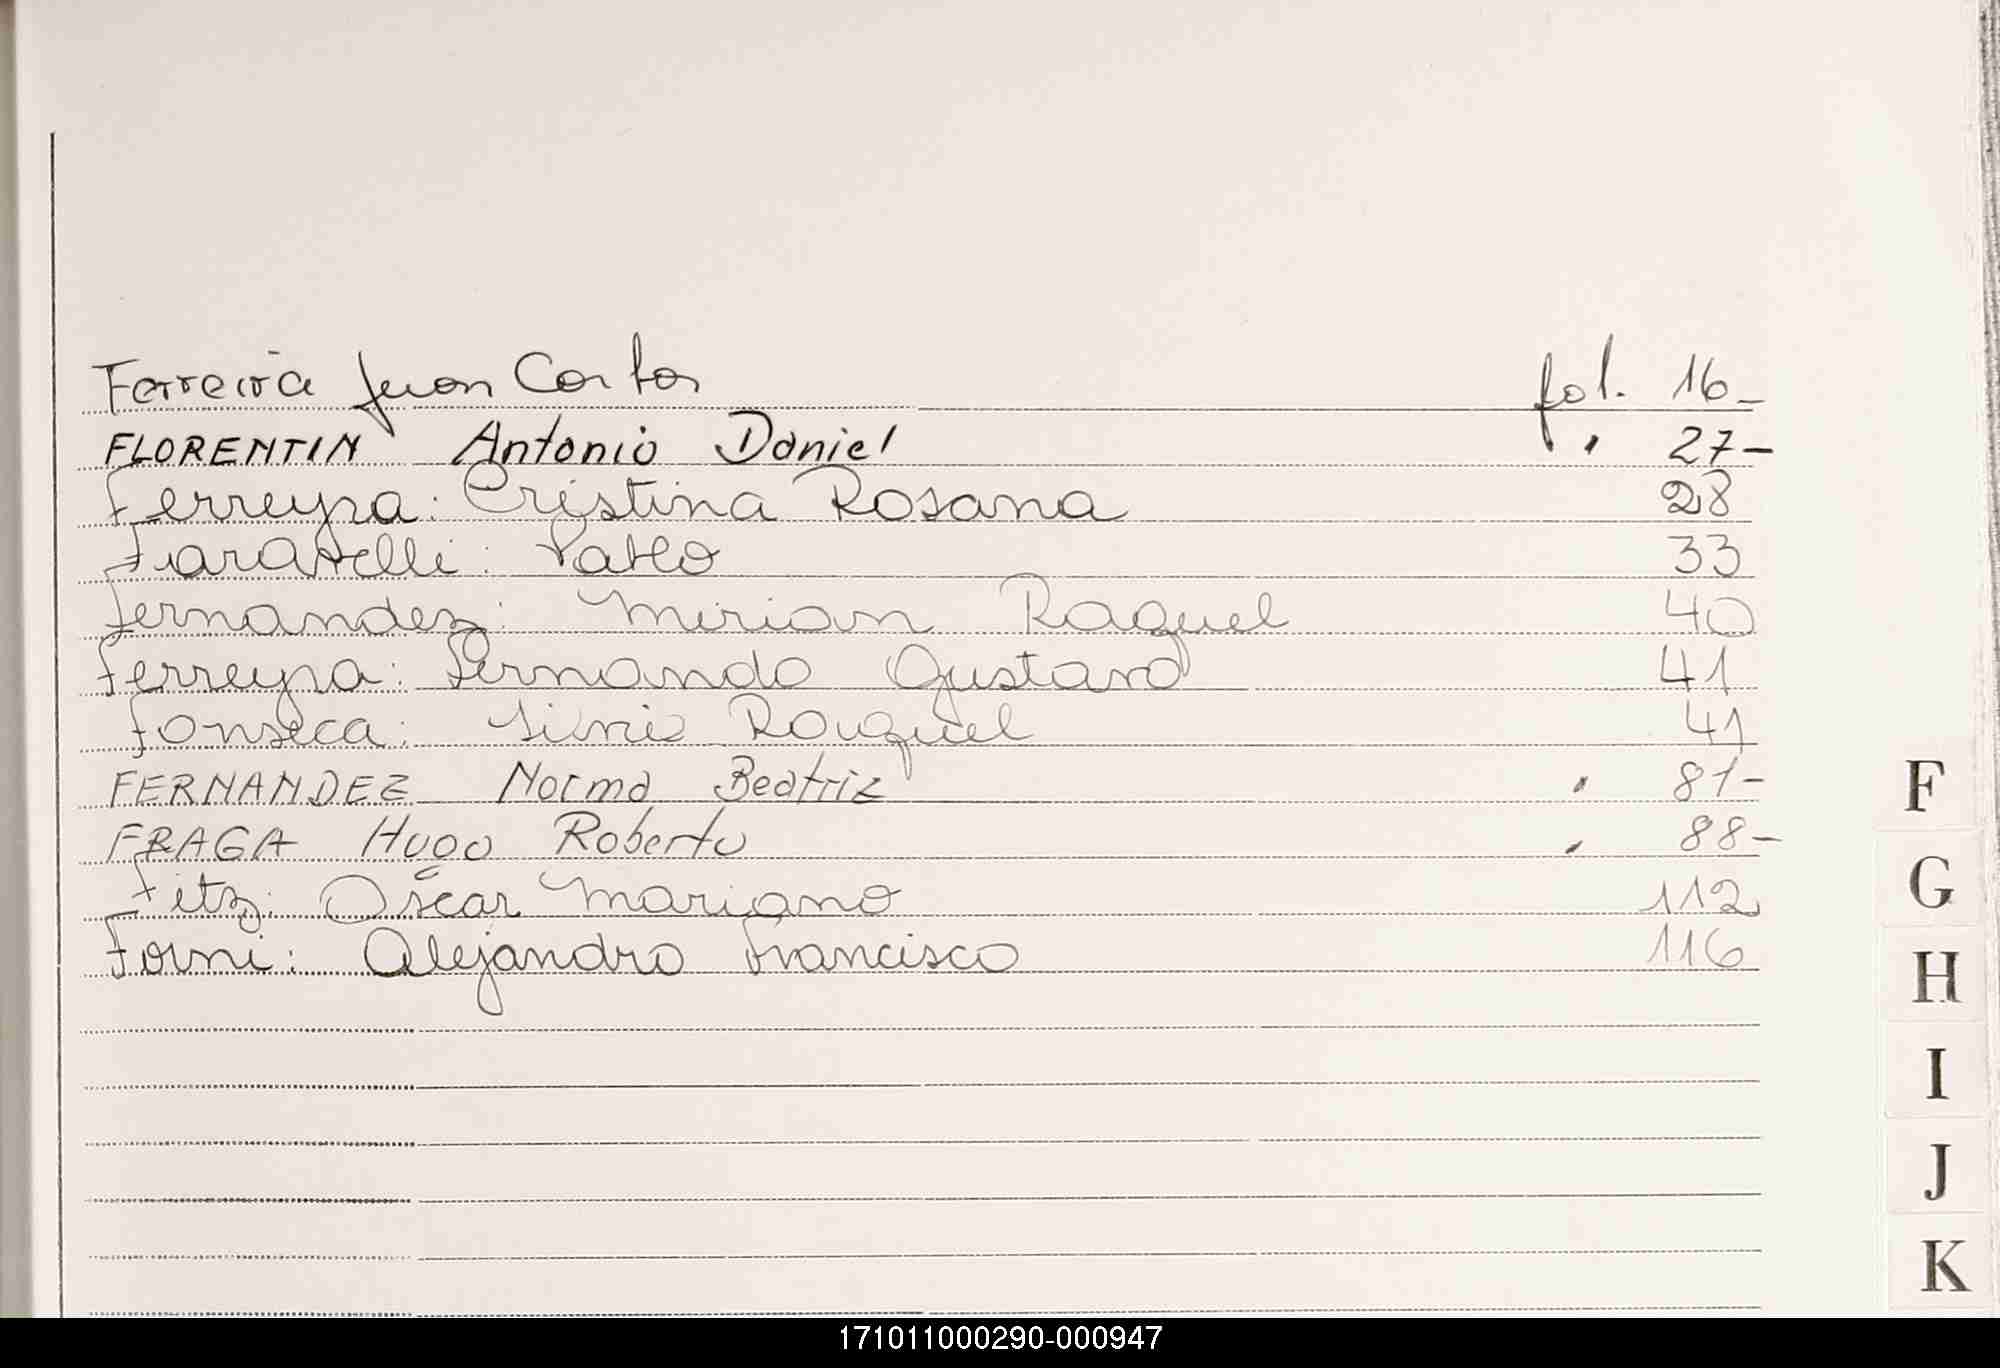 Ferreira Juan Carlos fol. 16-
FLORENTIN Antonio Daniel " 27-
Ferreyra: Cristina Rosana 28
Faravelli: Pablo 33
Fernandez: Mirian Raquel 40
Ferreyra: Fernando Gustavo 41
Fonseca: Rouquel 41
FERNANDEZ Norma Beatriz " 81-
FRAGA Hugo Roberto " 88-
Fitz: Oscar Mariano 112
Forni: Alejandro Francisco 116
F
G
H
I
J
K
171011000290-000947